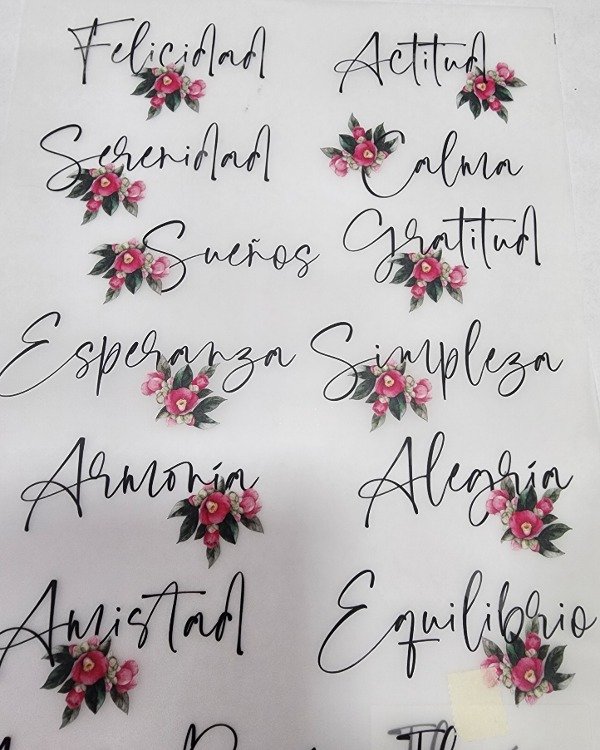 Felicidad Actitud
Serenidad Calma
Sueños Gratitud
Esperanza Simpleza
Armonía Alegría
Amistad Equilibrio